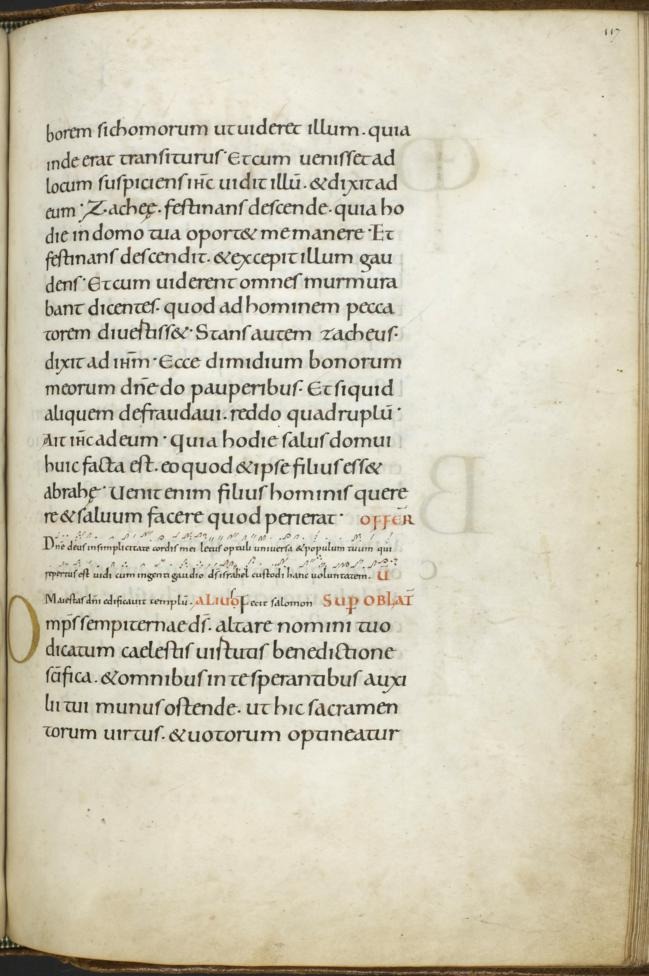 117
borem sichomorum ut uideret illum. quia
inde erat transiturus. Et cum uenisset ad
locum suspiciens ihc uidit illū. & dixit ad
eum. Zacheę. festinans descende. quia ho
die in domo tua oport& me manere. Et
festinans descendit. & excepit illum gau
dens. Et cum uiderent omnes murmura
bant dicentes. quod ad hominem pecca
torem diuertiss&. Stans autem zacheus.
dixit ad ihm̄. Ecce dimidium bonorum
meorum dn̄e do pauperibus. Et si quid
aliquem defraudaui. reddo quadruplū.
Ait ihc ad eum. quia hodie salus domui
huic facta est. eo quod & ipse filius ess&
abrahę. Uenit enim filius hominis quere
re & saluum facere quod perierat. OFFER
Dn̄e deus in simplicitate cordis mei letus optuli uniuersa & populum tuum qui
repertus est uidi cum ingenti gaudio ds̄ israhel custodi hanc uoluntatem. U
Maiestas dn̄i edificauit templū. ALIUS Fecit salomon SUP OBLAT̄
Omps̄ sempiternae ds̄. altare nomini tuo
dicatum caelestis uirtutis benedictione
sc̄ifica. & omnibus in te sperantibus auxi
lii tui munus ostende. ut hic sacramen
torum uirtus. & uotorum optineatur